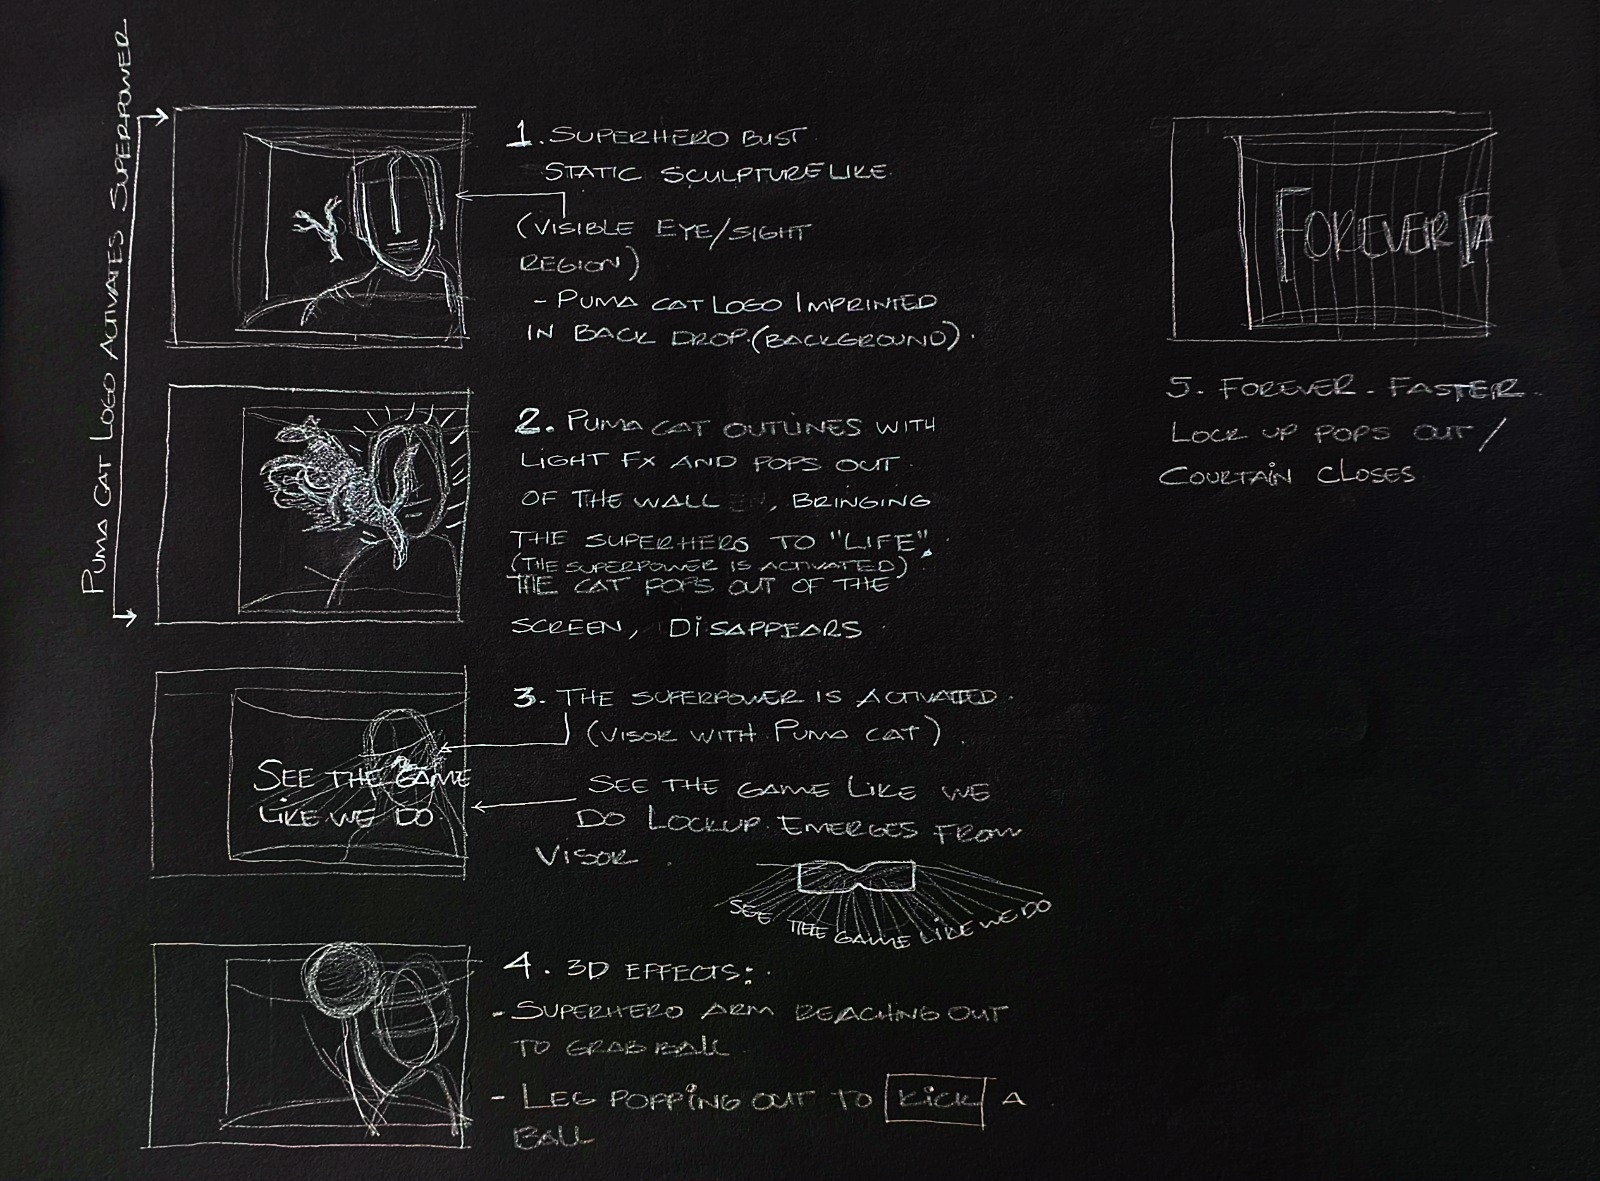 PUMA CAT LOGO ACTIVATES SUPERPOWER
1. SUPERHERO BUST
STATIC SCULPTURE LIKE
(VISIBLE EYE/SIGHT
REGION)
- PUMA CAT LOGO IMPRINTED
IN BACK DROP. (BACKGROUND).
2. PUMA CAT OUTLINES WITH
LIGHT FX AND POPS OUT
OF THE WALL , BRINGING
THE SUPERHERO TO "LIFE".
(THE SUPERPOWER IS ACTIVATED)
THE CAT POPS OUT OF THE
SCREEN, DISAPPEARS
3. THE SUPERPOWER IS ACTIVATED.
(VISOR WITH PUMA CAT).
SEE THE GAME
LIKE WE DO
SEE THE GAME LIKE WE
DO LOCKUP. EMERGES FROM
VISOR.
SEE THE GAME LIKE WE DO
4. 3D EFFECTS:
- SUPERHERO ARM REACHING OUT
TO GRAB BALL
- LEG POPPING OUT TO KICK A
BALL
FOREVER FA
5. FOREVER. FASTER.
LOCK UP POPS OUT /
COURTAIN CLOSES